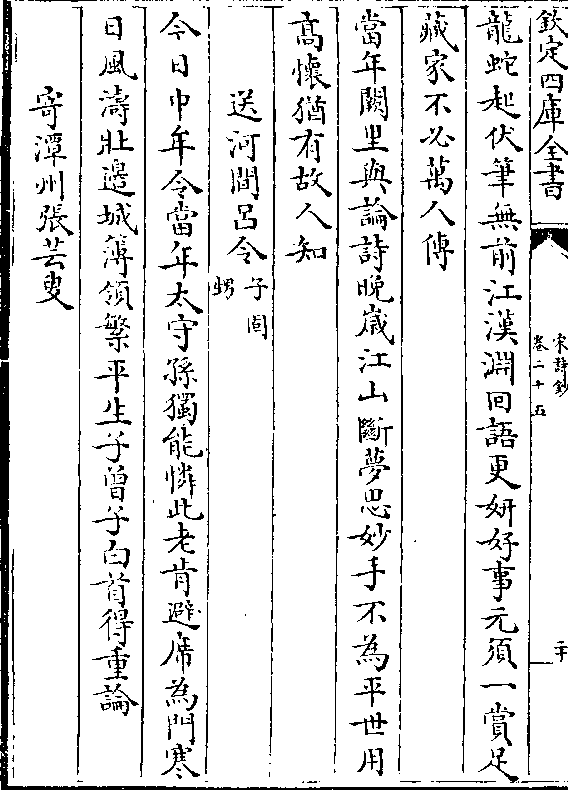 欽定四庫全書
宋詩鈔
卷二十五
龍蛇起伏筆無前江漢淵回語更妍好事元須一賞足
藏家不必萬人傳
當年闕里與論詩晚嵗江山斷夢思妙手不為平世用
髙懷猶有故人知
送河間呂令
子固
甥
今日中年令當年太守孫獨能憐此老肯避席為門寒
日風濤壯邉城簿領繁平生子曾子白首得重論
寄潭州張芸叟